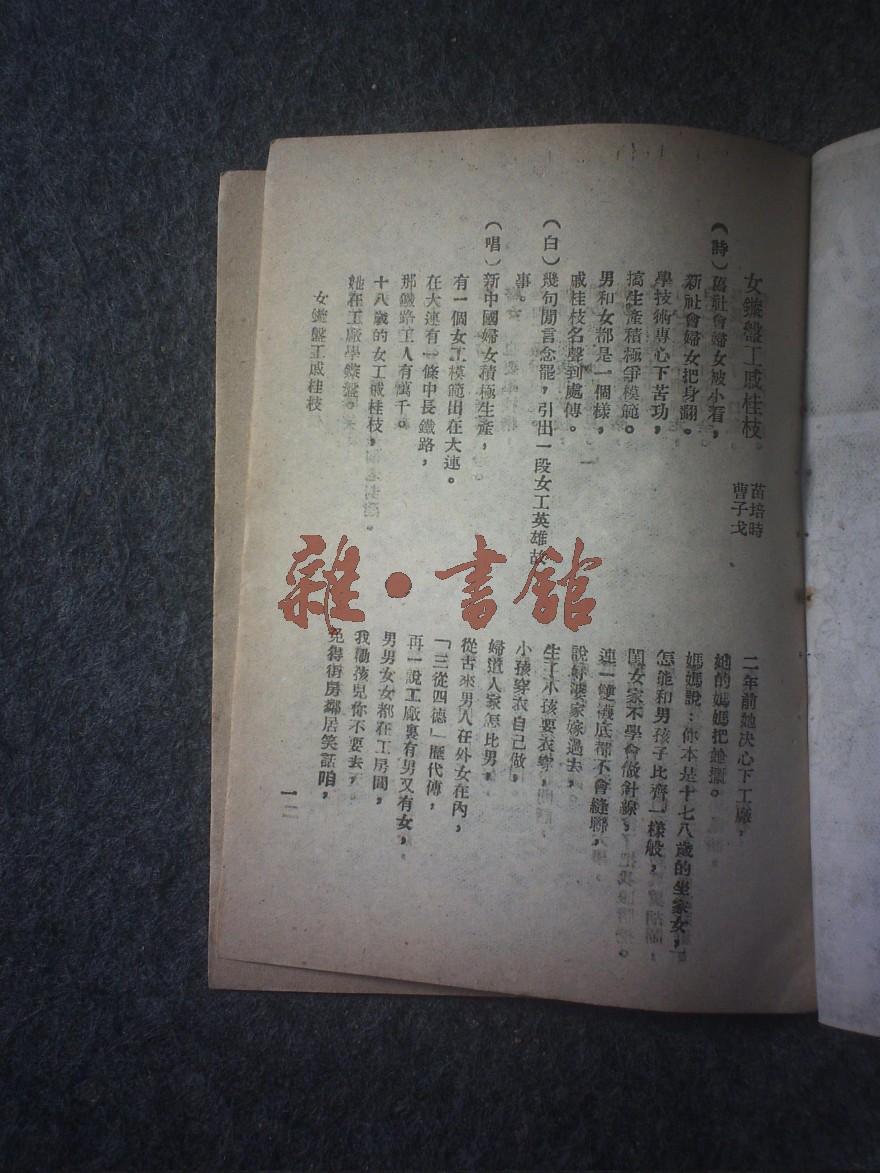 女鏇盤工戚桂枝
苗培時
曹子戈
（詩）舊社會婦女被小看，
新社會婦女把身翻。
學技術專心下苦功，
搞生產積極爭模範。
男和女都是一個樣，
戚桂枝名聲到處傳。
（白）幾句閒言念罷，引出一段女工英雄故
事。
（唱）新中國婦女積極生產，
有一個女工模範出在大連。
在大連有一條中長鐵路，
那鐵路工人有萬千。
十八歲的女工戚桂枝，
她在工廠學鏇盤。
二年前她決心下工廠，
她的媽媽把她攔。
媽媽說：你本是十七八歲的坐家女，
怎能和男孩子比齊一樣般，
閨女家不學會做針線，
連一雙襪底都不會縫聯，
說好婆家嫁過去，
生了小孩要衣穿，
小孩穿衣自己做，
婦道人家怎比男，
從古來男人在外女在內，
「三從四德」歷代傳，
再一說工廠裏有男又有女，
男男女女都在工房間，
我勸孩兒你不要去，
免得街房鄰居笑話咱，
女鏇盤工戚桂枝
一二
雜·書館